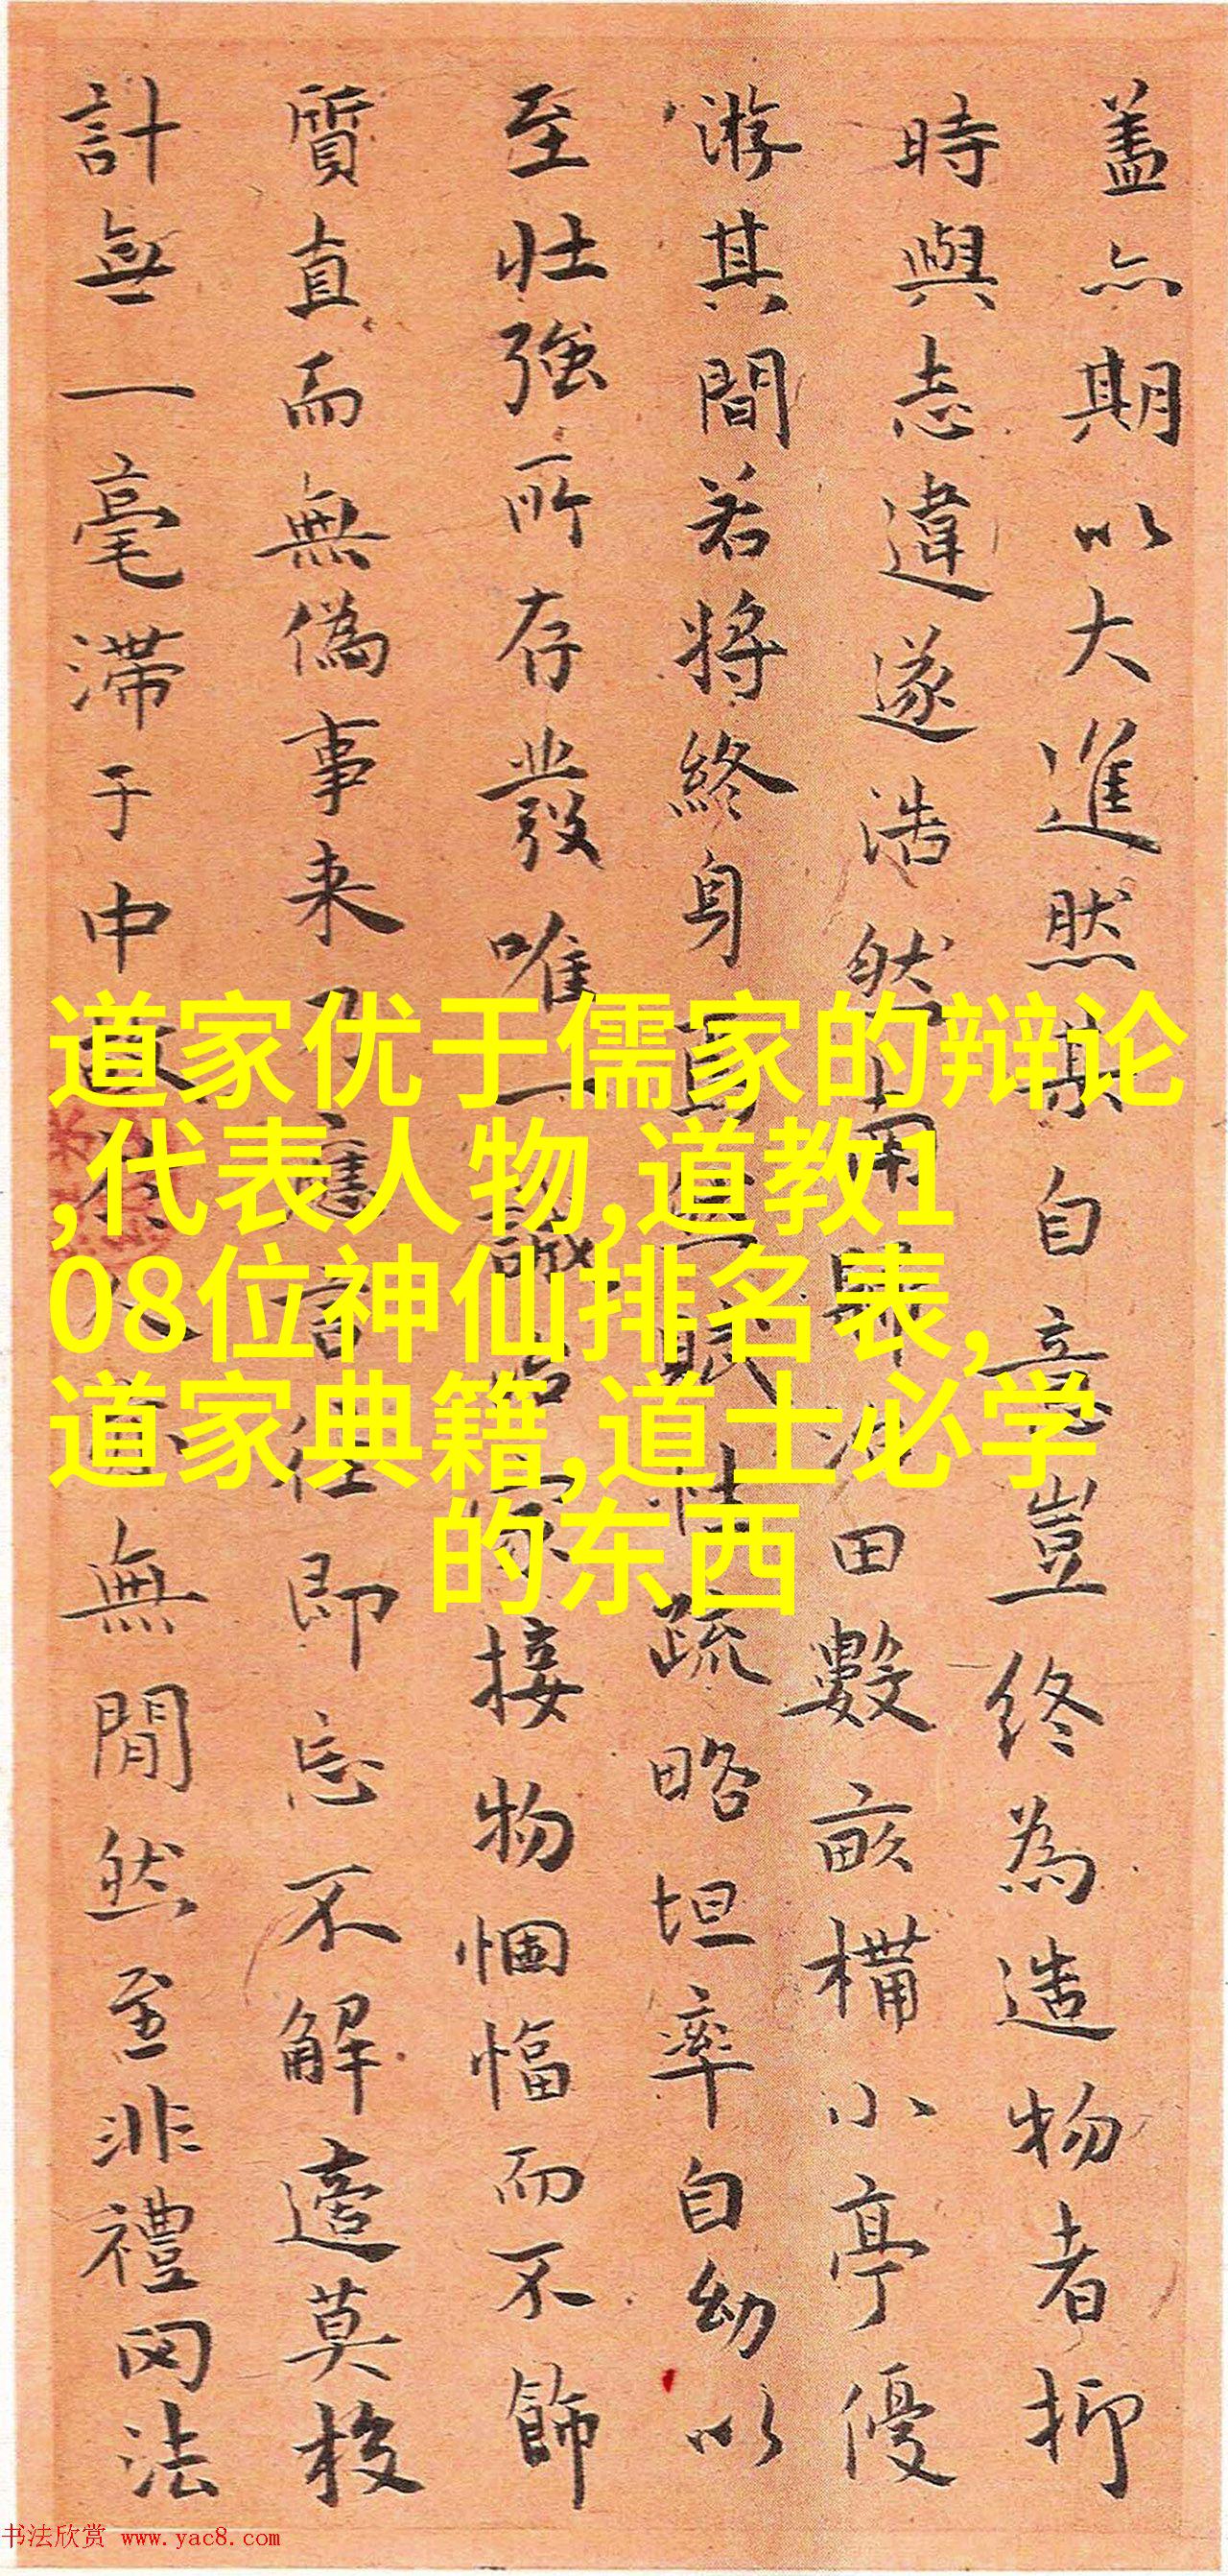 蓋亦期以大進然其自意豈終為造物者抑
時與志違遂浩然用歸治田數畝構小亭優
游其間若將終身焉無賦性疏略坦率自幼以
至壯強所存發唯一誠治家接物悃愊而不飾
質直而無偽事来乃應言往即忘不解適莫校
計無一毫滯于中故於人無間然至非禮罔法
道家优于儒家的辩论
,代表人物,道教1
08位神仙排名表,
道家典籍,道士必学
的东西
书法欣赏 www.yac8.com